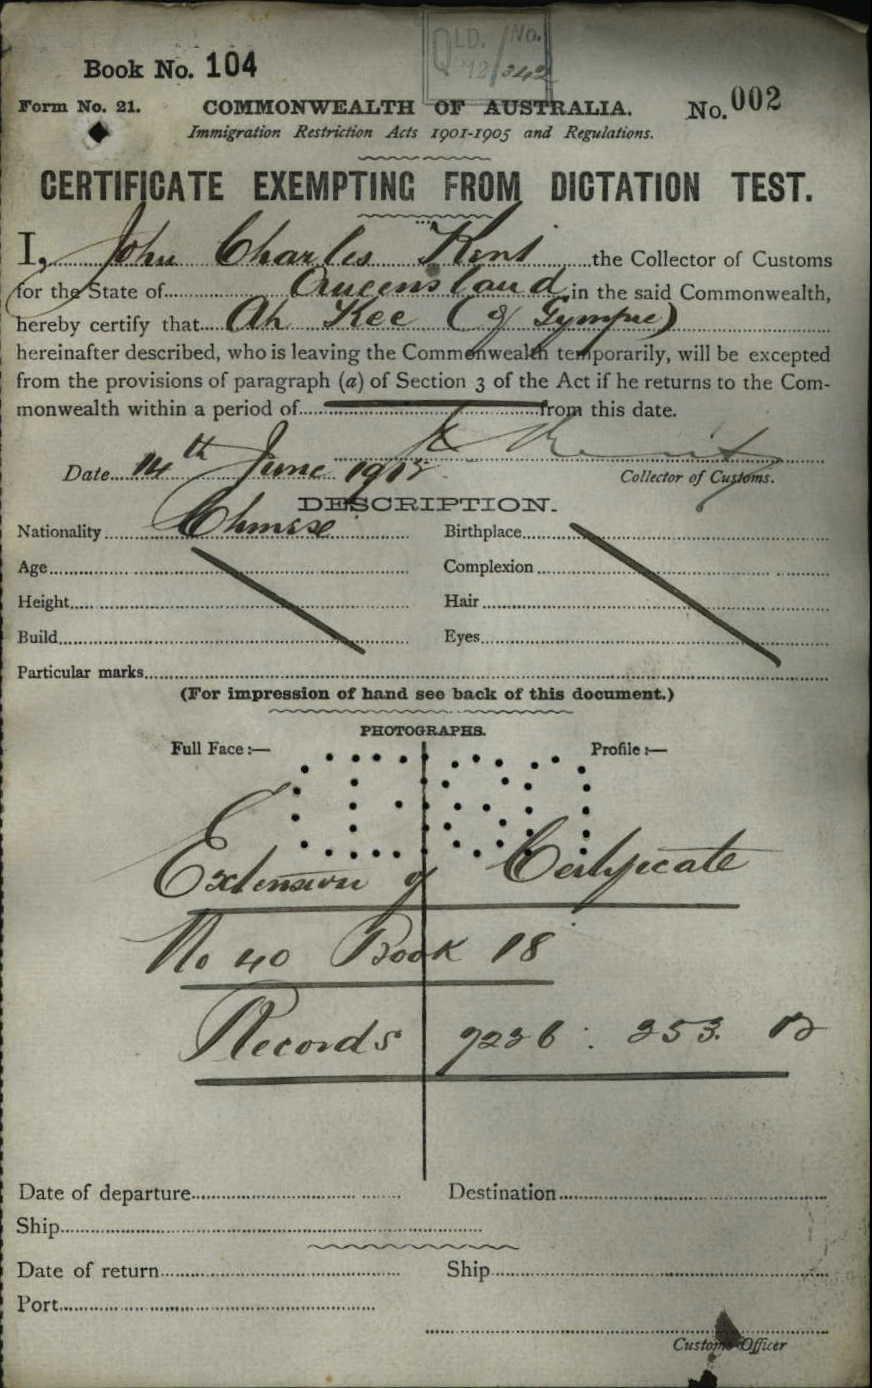 QLD. No.
12/342
Book No. 104
Form No. 21. COMMONWEALTH OF AUSTRALIA. No. 002
Immigration Restriction Acts 1901-1905 and Regulations.
CERTIFICATE EXEMPTING FROM DICTATION TEST.
I, John Charles Kent the Collector of Customs
for the State of Queensland in the said Commonwealth,
hereby certify that Ah Kee (of Gympie)
hereinafter described, who is leaving the Commonwealth temporarily, will be excepted
from the provisions of paragraph (a) of Section 3 of the Act if he returns to the Com-
monwealth within a period of from this date.
Date 14th June 1912 Collector of Customs.
DESCRIPTION.
Nationality Chinese Birthplace
Age Complexion
Height Hair
Build Eyes
Particular marks
(For impression of hand see back of this document.)
PHOTOGRAPHS.
Full Face :— Profile :—
Extension of Certificate
No 40 Book 18
Records 7226 : 253. 12
Date of departure Destination
Ship
Date of return Ship
Port
Customs Officer